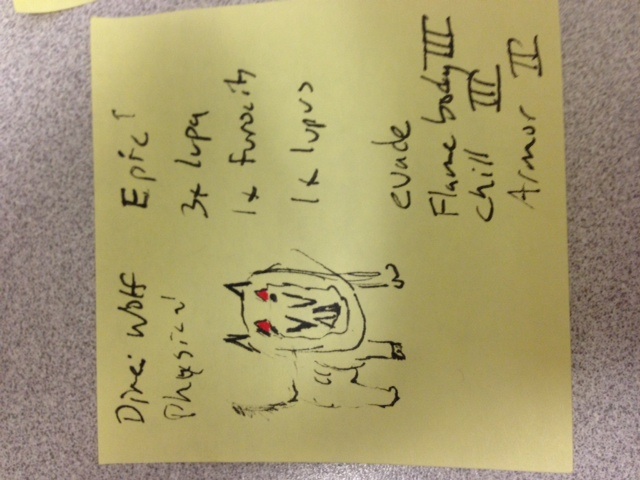 Dire: Wolf Epic!
Physical 3x lupa
1x furocity
1x lupus
evade
Flame body III
chill III
Armor II